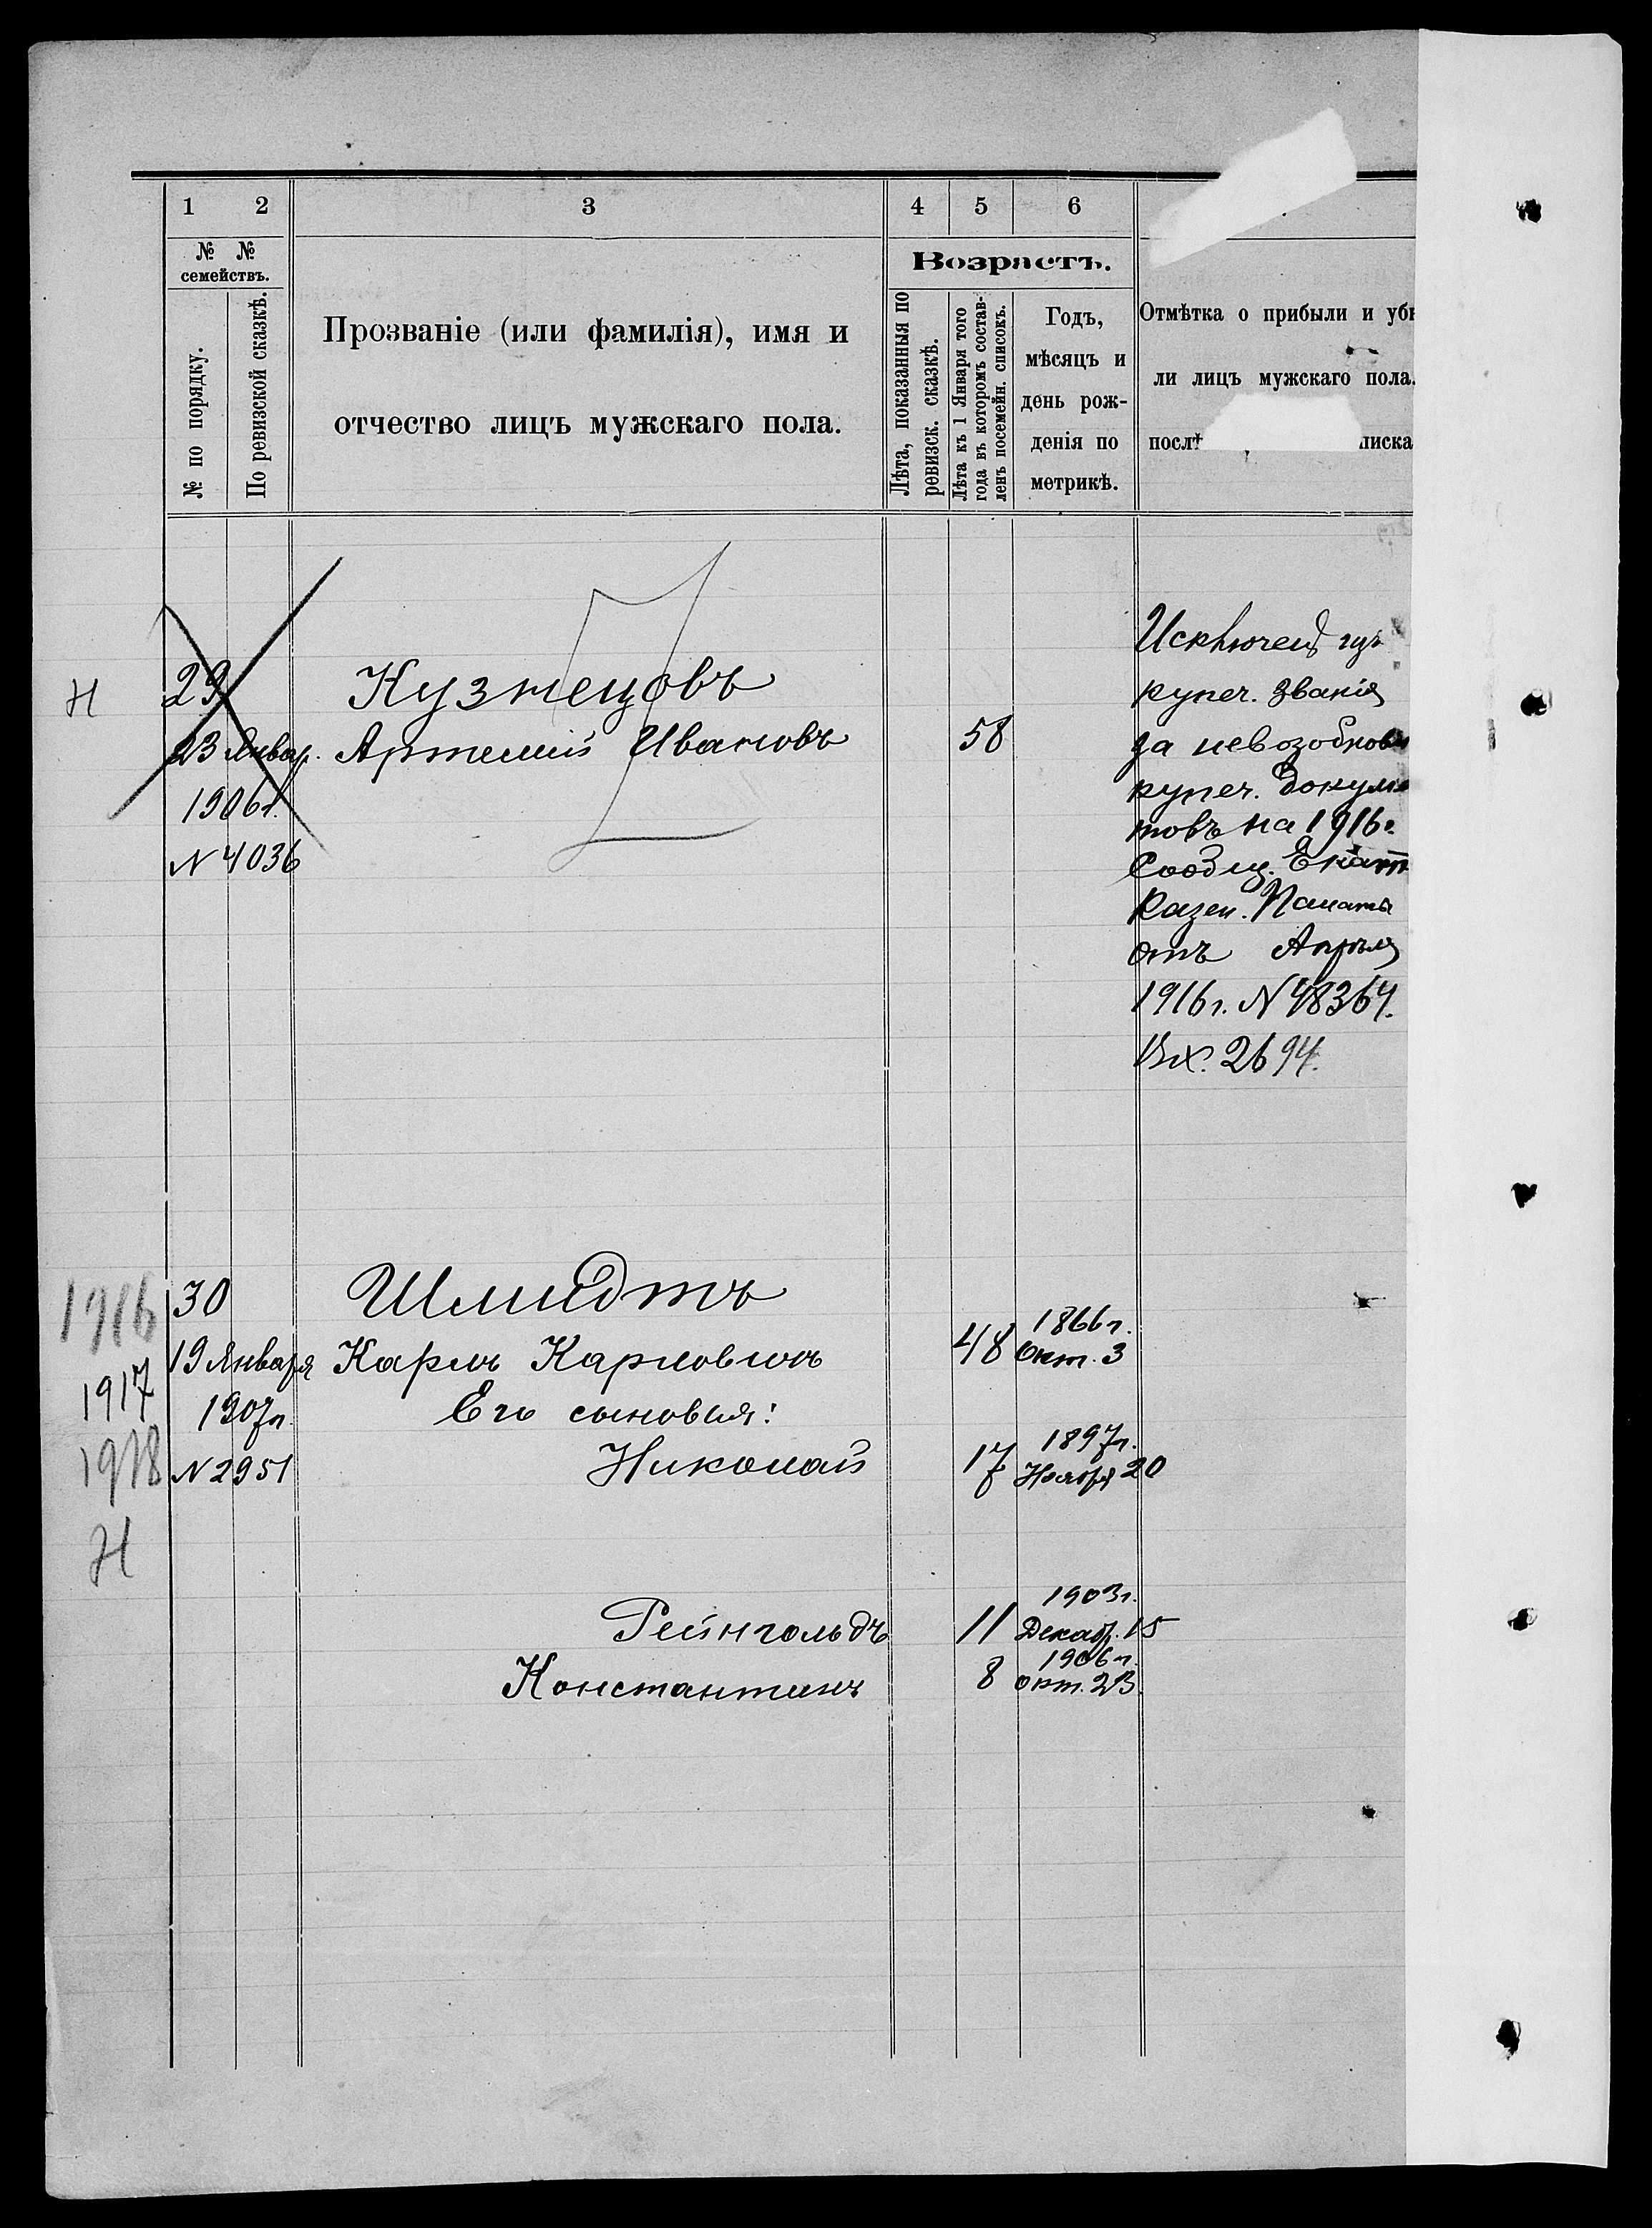 1 2 3 4 5 6
№ № семействъ.
№ по порядку.
По ревизской сказкѣ.
Прозваніе (или фамилія), имя и
отчество лицъ мужскаго пола.
Возрастъ.
Лѣта, показанныя по
ревизск. сказкѣ.
Лѣта къ 1 Января того
года въ которомъ состав-
ленъ посемейн. списокъ.
Годъ,
мѣсяцъ и
день рож-
денія по
метрикѣ.
Отмѣтка о прибыли и уб
ли лицъ мужскаго пола.
послѣ писка
Н
29
23 Январ.
1906г.
N 4036
Кузнецовъ
Артемій Ивановъ
58
Исключенъ изъ
купеч. званія
за невозобнов
купеч. докуме
товъ на 1916г.
Сообщ. Екат
Казен. Палаты
отъ Апрѣля
1916г. N 48364.
Вх. 2694.
1916
1917
1918
Н
30
19 Января
1907г.
N 2951
Шмидтъ
Карлъ Карловичъ
48
1866г.
Окт. 3
Его сыновья:
Николай
17
1897г.
Ноября 20
Рейнгольдъ
11
1903г.
Декабр. 15
Константинъ
8
1906г.
Окт. 23.